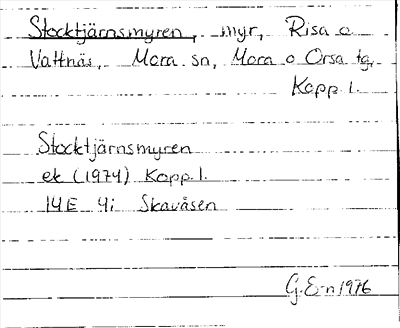 Stocktjärnsmyren, myr, Risa o
Vattnäs, Mora sn, Mora o Orsa tg,
Kopp l.
Stocktjärnsmyren
ek (1974) Kopp l.
14E 4i Skavåsen
G.E-n 1976